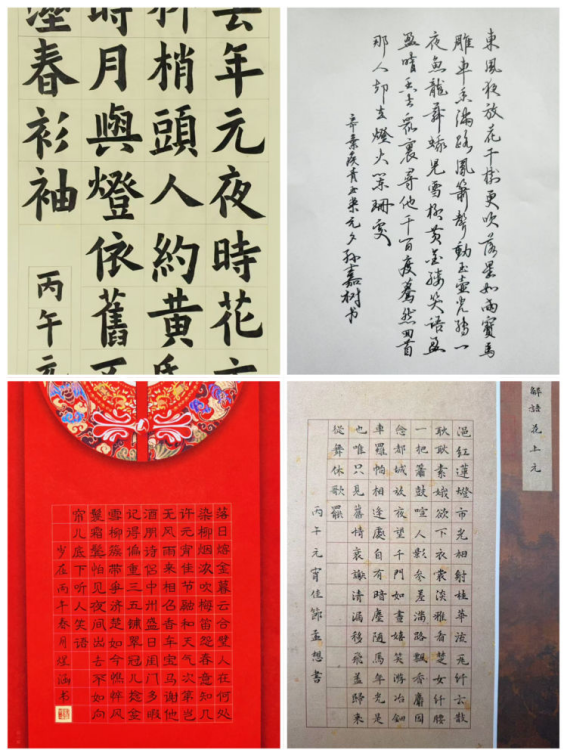 去年元夜時花
梢頭人約黃
時月與燈依舊不
溼春衫袖
丙午
東風夜放花千樹更吹落星如雨寶馬
雕車香滿路鳳簫聲動玉壺光轉一
夜魚龍舞蛾兒雪柳黃金縷笑語盈
盈暗香去衆裏尋他千百度驀然回首
那人却在燈火闌珊處
辛棄疾青玉案元夕孫嘉树书
落日熔金暮云合璧人在何处
染柳烟浓吹梅笛怨春意知几
许元宵佳节融和天气次第岂
无风雨来相召香车宝马谢他
酒朋诗侣中州盛日闺门多暇
记得偏重三五铺翠冠儿捻金
雪柳簇带争济楚如今憔悴风
鬟霜鬓怕见夜间出去不如向
帘儿底下听人笑语
岁在丙午春月煜涵书
解語花上元
浥紅蓮燈市光相射桂華流瓦纤云散
耿耿素娥欲下衣裳淡雅看楚女纤腰
一把簫鼓喧人影參差滿路飄香麝因
念都城放夜望千門如晝嬉笑游冶鈿
車羅帕相逢處自有暗塵隨馬年光是
也唯只見舊情衰謝清漏移飛蓋歸來
從舞休歌罷
丙午元宵佳節孟想書